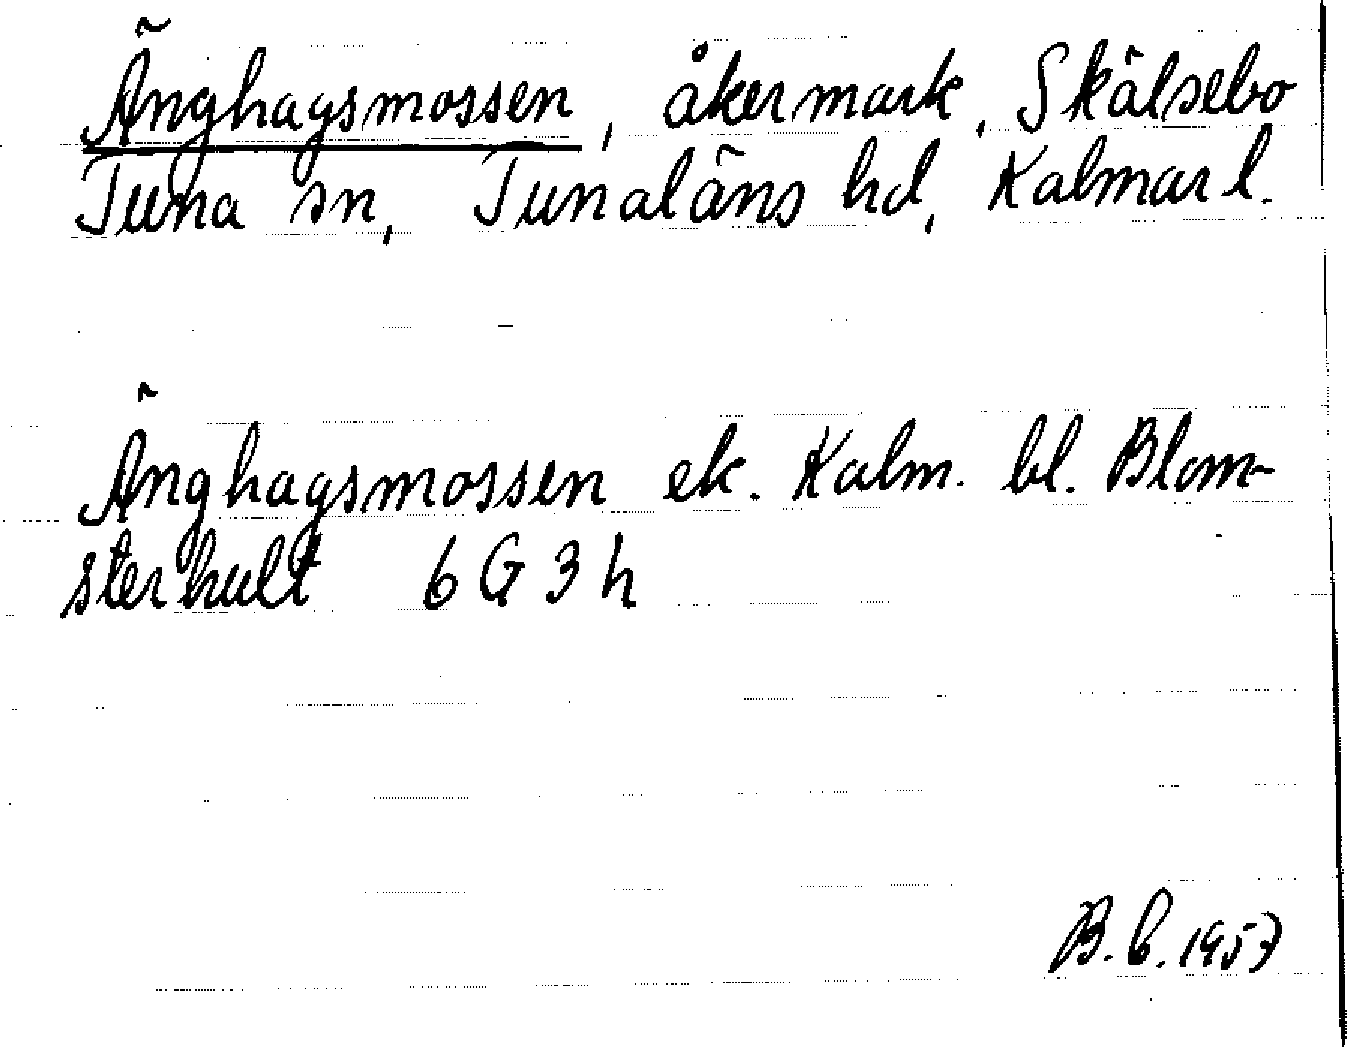 Änghagsmossen, åkermark, Skälsebo
Tuna sn, Tunaläns hd, Kalmar l.
Änghagsmossen ek. Kalm. bl. Blom-
sterhult 6 G 3 h
B. b. 1957